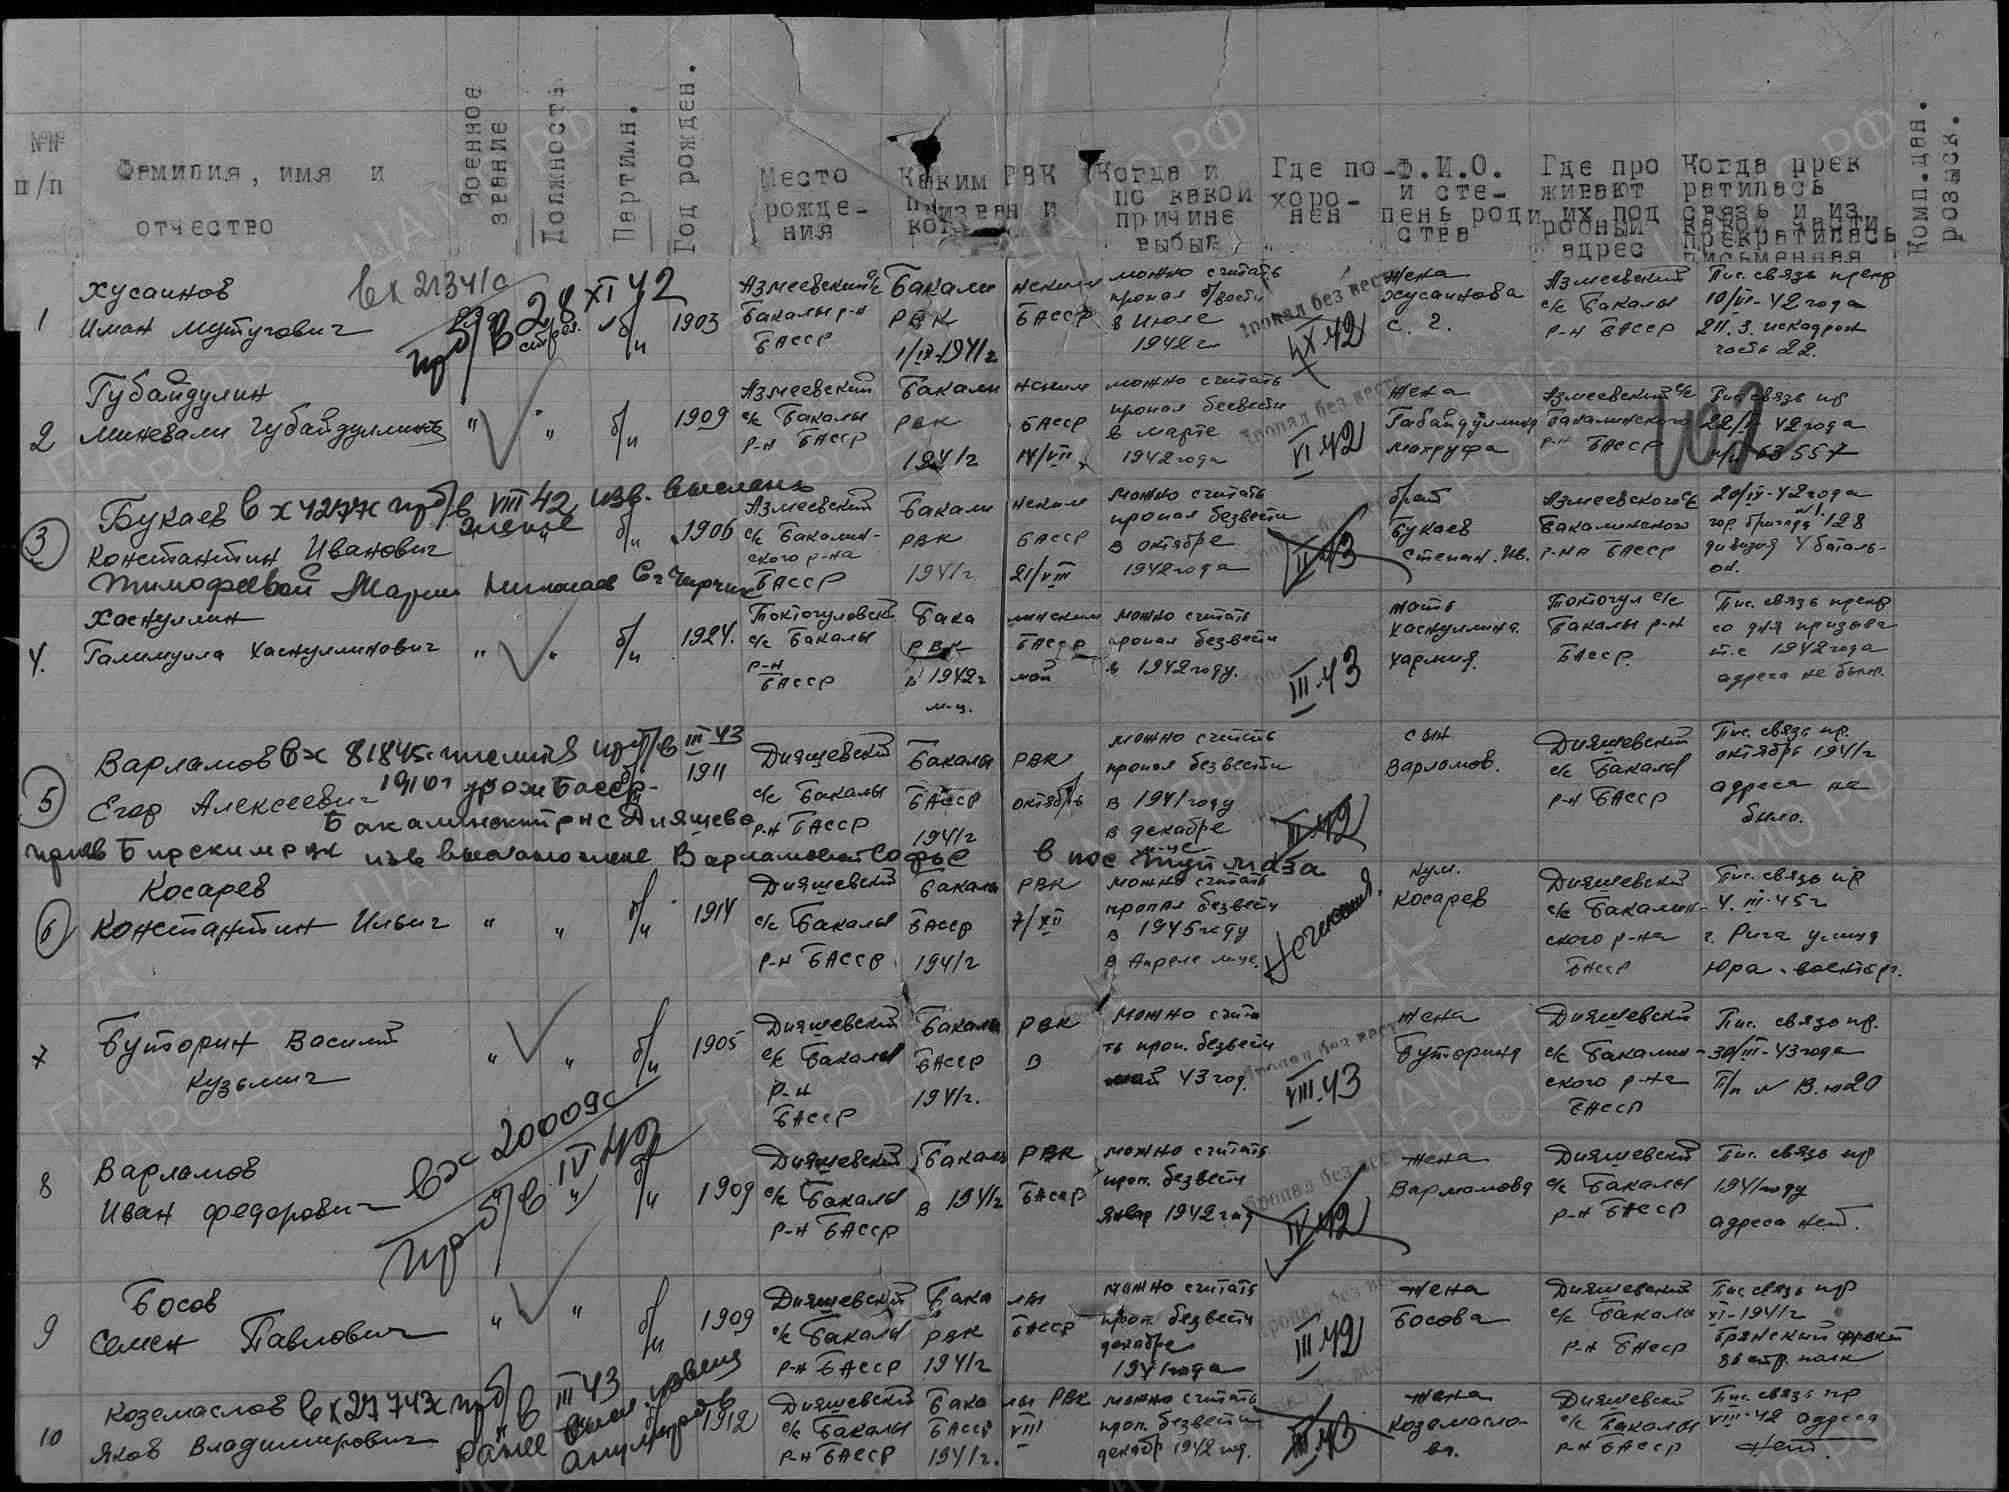 №№
п/п
Фамилия, имя и
отчество
Военное
звание
Должность
Партийн.
Год рожден.
Место
рожде-
ния
Каким РВК
призван и
Когда и
по какой
причине
выбыл
Где по-
хоро-
нен
Ф.И.О.
и сте-
пень род
ства
Где про
живают
их под
робный
адрес
Когда прек
ратилась
связь и из
какой части
прекратилась
письменная
Комп.дан.
розыск.
1
Хусаинов
вх 21341с
Иман Мутугович
28 XI 42
б/п
1903
Азмеевский с/с
Бакалы р-н
БАССР
Бакалинским
РВК БАССР
1941г
можно считать
пропал б/вести
в Июле
1942г
пропал без вести
XI.42
жена
Хусаинова
С. Г.
Азмеевский
с/с Бакалы
р-н БАССР
Пис. связь прекр
10/VI-42 года
часть 22.
2
Губайдулин
Минвали Губайдуллинович
" "
б/п
1909
Азмеевский
с/с Бакалы
р-н БАССР
Бакалинским
РВК БАССР
1941г 14/VII
можно считать
пропал безвести
в марте
1942 года
пропал без вести
VI.42
жена
Махруфа
Азмеевский с/с
Бакалинского
р-н БАССР
Пис связь пр
42 года
3
Букаев вх 4277с пр б/в VIII 42 изв. выслано
Константин Иванович
б/п
1906
Тимофеевой Марии
Азмеевский
с/с Бакалин-
ского р-на
БАССР
Бакалинским
РВК БАССР
1941г 21/VIII
можно считать
пропал безвести
в октябре
1942 года
II.43
брат
Букаев
Степан. Ив.
Азмеевского с/с
Бакалинского
р-на БАССР
20/IV-42 года
128
дивизия 4 баталь-
он.
4.
Хаснуллин
Галимулла Хаснуллинович
" "
б/п
1924.
с/с Бакалы
р-н
БАССР
Бакалинским
РВК БАССР
в 1942г май
м-ц.
можно считать
пропал безвести
в 1942 году.
III.43
мать
Хаснуллина.
Бакалы р-н
БАССР.
Пис. связь прекр
со дня призыва
т.е 1942 года
адреса не было.
5
Варламов вх 81845с пр б/в III 43
Егор Алексеевич
1910г урож БАССР
б/п
1911
Бакалинский р-н с Дияшево
Дияшевский
с/с Бакалы
р-н БАССР
Бакалы РВК
БАССР октябрь
1941г
можно считать
пропал безвести
в 1941 году
в декабре
м-це
II.42
сын
Варламов.
Дияшевский
с/с Бакалы
р-н БАССР
Пис. связь пр.
октябрь 1941г
адреса не
было.
призв Бирским рвк изв выслано жене Варламовой Софье в пос Туймаза
6
Косарев
Константин Ильич
" "
б/п
1914
Дияшевский
с/с Бакалы
р-н БАССР
Бакалы РВК
БАССР 7/XII
1941г
можно считать
пропал безвести
в 1945 году
в Апреле м-це.
Косарев
Дияшевский
с/с Бакалин-
ского р-на
БАССР
Пис. связь пр
4. III-45г
г. Рига улица
7
Буторин Василий
Кузьмич
" "
б/п
1905
Дияшевский
с/с Бакалы
р-н
БАССР
Бакалы РВК
БАССР в
1941г.
можно счита
ть проп. безвести
май 43 год.
пропал без вести
VIII.43
жена
Буторина
Дияшевский
с/с Бакалин-
ского р-на
БАССР
Пис. связь пр.
30/III-43 года
8
Варламов
Иван Федорович
вх 20009с
пр б/в IV 42
б/п
1909
Дияшевский
с/с Бакалы
р-н БАССР
Бакалы РВК
в 1941г БАССР
можно считать
проп. безвести
январ 1942 год
пропал без вести
IV.42
жена
Варламова
Дияшевский
с/с Бакалы
р-н БАССР
Пис. связь пр
1941 году
адреса нет.
9
Босов
Семен Павлович
" "
б/п
1909
Дияшевский
с/с Бакалы
р-н БАССР
Бакалы
РВК БАССР
1941г
можно считать
проп. безвести
декабре
1941 года
III.42
жена
Босова
Дияшевский
с/с Бакалы
р-н БАССР
Пис связь пр
XI-1941г
Брянский фронт
10
Коземаслов вх 27743с пр б/в III 43
Яков Владимирович
ранее
1912
Дияшевский
с/с Бакалы
р-н БАССР
Бакалы РВК
БАССР VIII
1941г.
можно считать
проп. безвести
декабр 1942 год.
III.43
жена
Коземасло-
ва.
Дияшевский
с/с Бакалы
р-н БАССР
Пис. связь пр
VIII-42 адреса
нет.